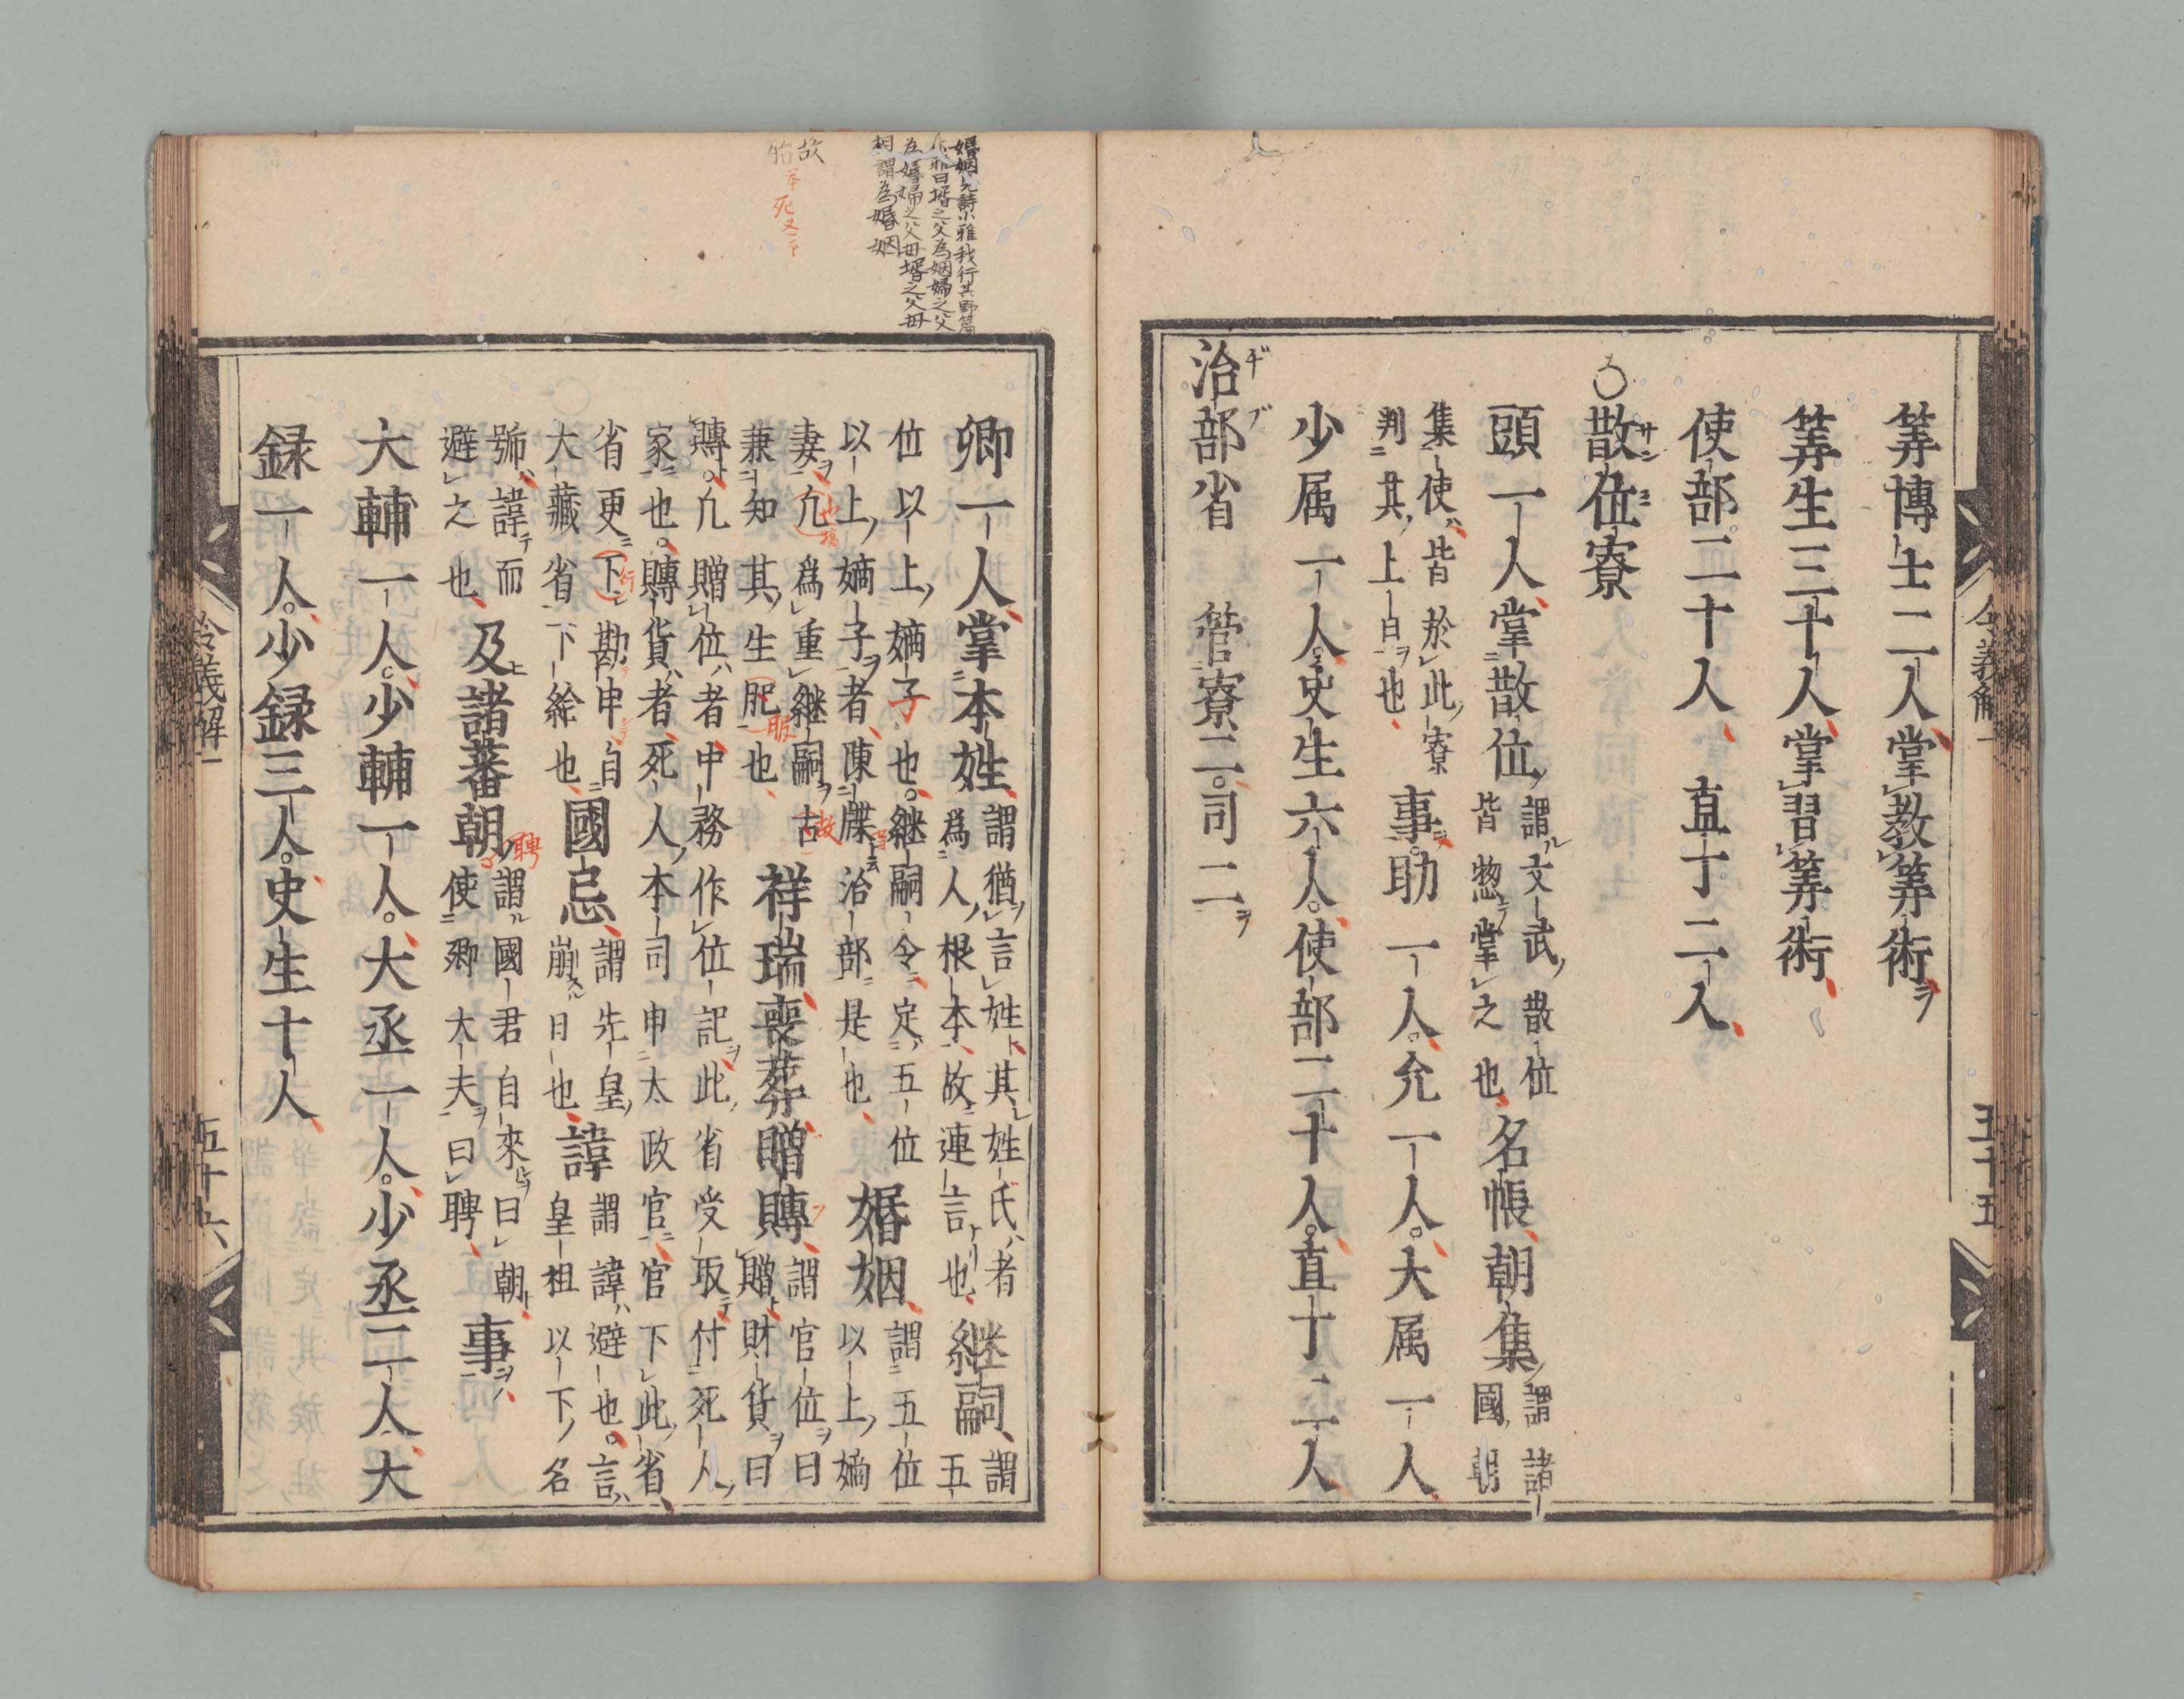 令義解一
五十五
筭博士二人掌教筭術
筭生三十人掌習筭術
使部二十人 直丁二人
散位寮
頭一人掌散位謂文武散位
皆惣掌之也名帳朝集謂諸
國朝
集使皆於此寮
判其上日也事助一人允一人大属一人
少属一人史生六人使部二十人直丁二人
治部省 管寮二司二
婚姻
詩小雅我行其野篇
曰壻之父為姻婦之父
為婚婦之父母壻之父母
相謂為婚姻
故
胎
卿一人掌本姓謂猶言姓其姓氏者
為人根本故連言也継嗣謂
五
位以上嫡子也継嗣令定五位
以上嫡子者陳牒治部是也婚姻謂五位
以上嫡
妻凢為重継嗣古
兼知其生肥也祥瑞喪葬贈賻謂官位曰
贈財貨曰
賻凢贈位者中務作位記此省受取付死人
家也賻貨者死人本司申太政官官下此省
省更下勘申自
大藏省下給也國忌謂先皇
崩日也諱謂諱避也言
皇祖以下名
號諱而
避之也及諸蕃朝聘謂國君自來曰朝
使卿大夫曰聘事
大輔一人少輔一人大丞一人少丞二人大
録一人少録三人史生十人
令義解一
五十六